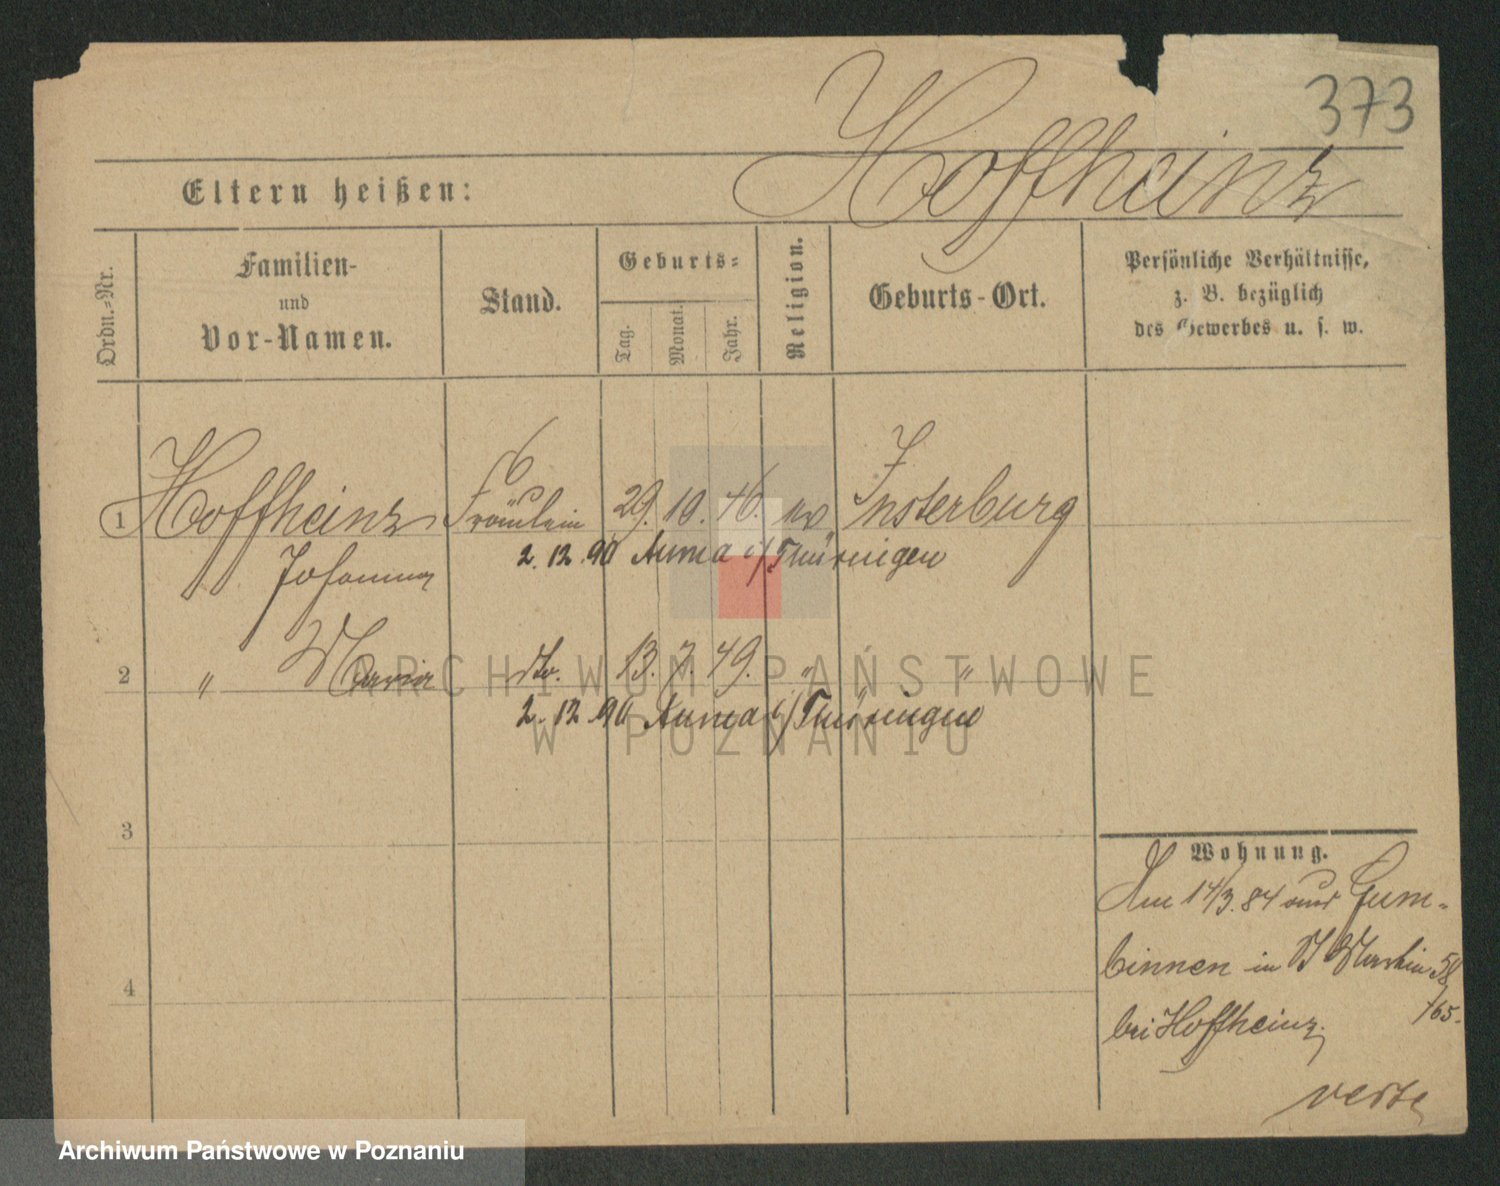 373
Hoffheinz
Eltern heißen:
Ordn.-Nr.
Familien-
und
Vor-Namen.
Stand.
Geburts-
Tag.
Monat.
Jahr.
Religion.
Geburts-Ort.
Persönliche Verhältnisse,
z. B. bezüglich
des Gewerbes u. s. w.
1 Hoffheinz Fräulein 29. 10. 46. ev Insterburg
Johanna 2. 12. 90 Auma i/Thüringen
2 " Maria dto. 13. 7. 49. " "
2. 12. 90 Auma i/Thüringen
3
4
Wohnung.
Am 14/3. 84 aus Gum-
binnen in St Martin 58
/65.
bei Hoffheinz.
verte
ARCHIWUM PAŃSTWOWE
W POZNANIU
Archiwum Państwowe w Poznaniu